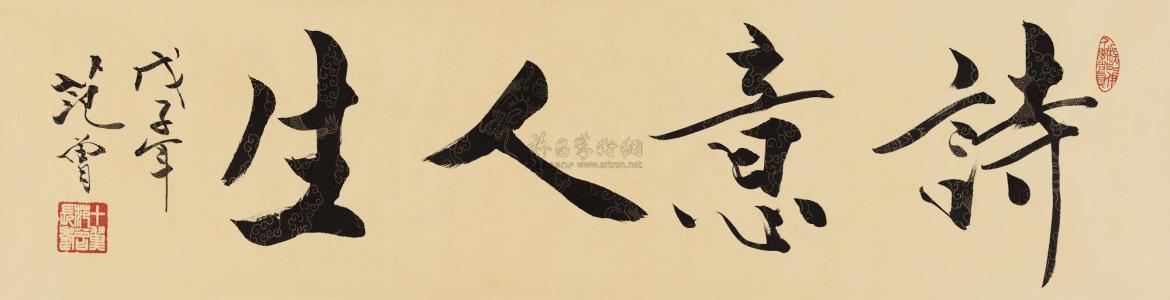 詩意人生
戊子年
范曾
雅昌藝術網
www.artron.net